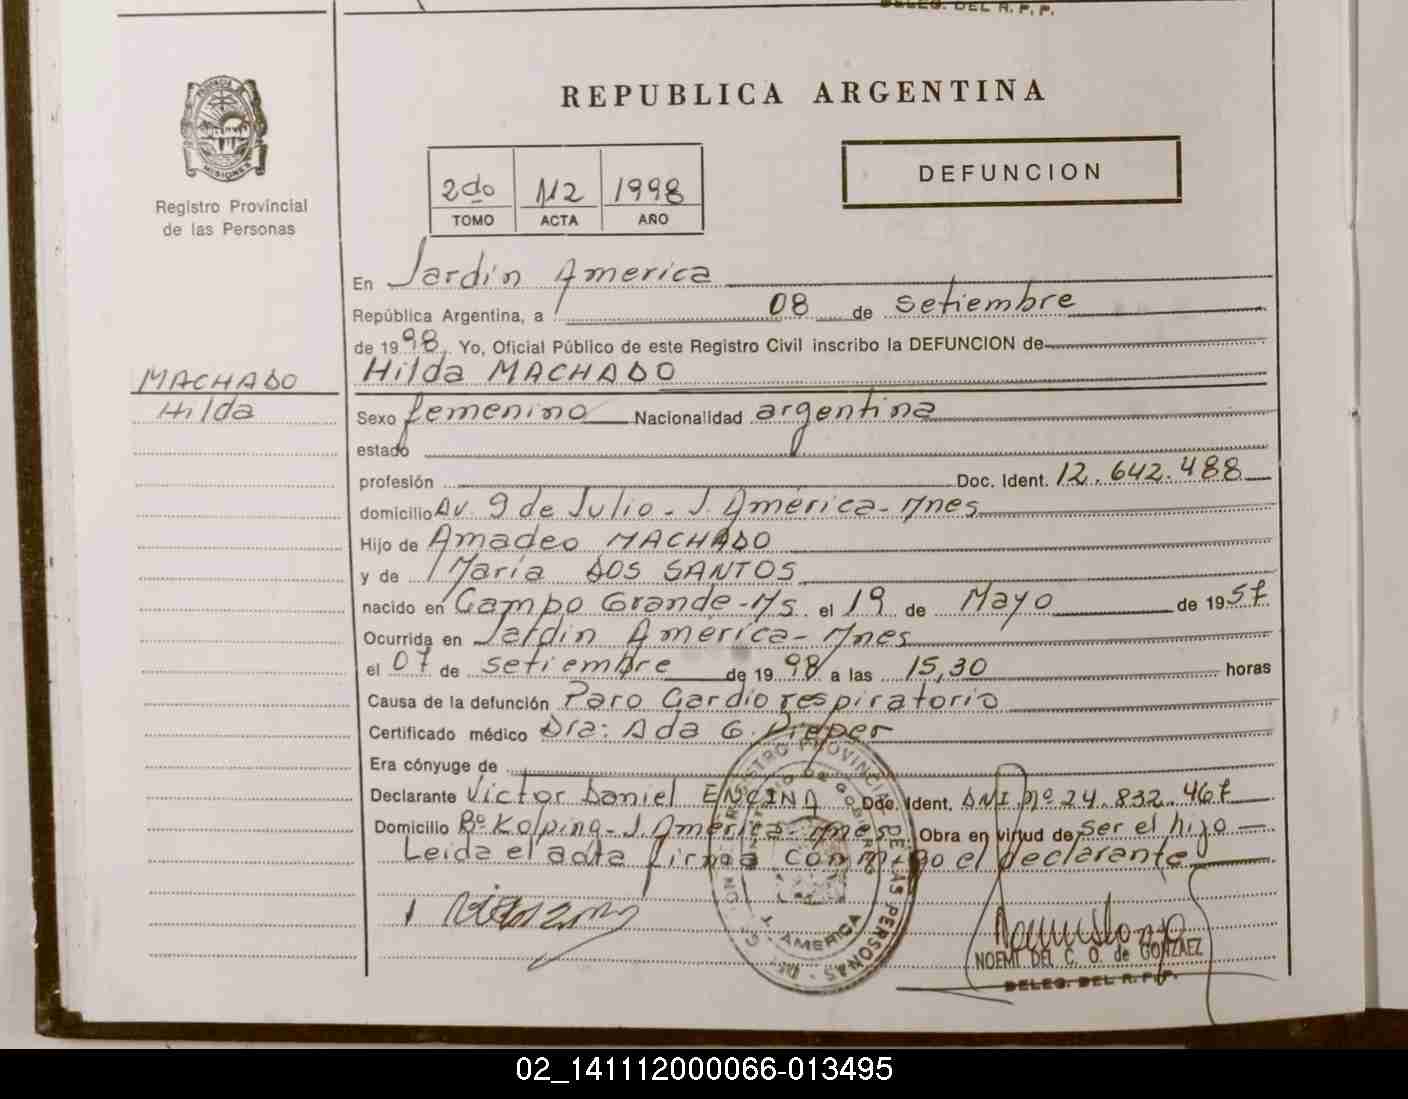 DELEG. DEL R. P. P.
REPUBLICA ARGENTINA
PROVINCIA DE MISIONES
Registro Provincial
de las Personas
2do 112 1998
TOMO ACTA AÑO
DEFUNCION
En Jardín America
República Argentina, a 08 de setiembre
de 1998. Yo, Oficial Público de este Registro Civil inscribo la DEFUNCION de
Hilda MACHADO
MACHADO
Hilda
Sexo femenino Nacionalidad argentina
estado
profesión Doc. Ident. 12.642.488
domicilio Av. 9 de Julio - J. América - Mnes
Hijo de Amadeo MACHADO
y de María DOS SANTOS
nacido en Campo Grande - Ms. el 19 de Mayo de 1957
Ocurrida en Jardín América - Mnes
el 07 de setiembre de 1998 a las 15,30 horas
Causa de la defunción Paro Cardiorespiratorio
Certificado médico Dra: Ada G. Pieper
Era cónyuge de
Declarante Victor Daniel ENCINA Doc. Ident. DNI nº 24.832.467
Domicilio Bº Kolping - J. América - Mnes Obra en virtud de ser el hijo
Leida el acta firma conmigo el declarante
REGISTRO PROVINCIAL DE LAS PERSONAS
MINISTERIO DE GOBIERNO
J. AMERICA
NOEMI DEL C. O. de GONZALEZ
DELEG. DEL R. P. P.
02_141112000066-013495